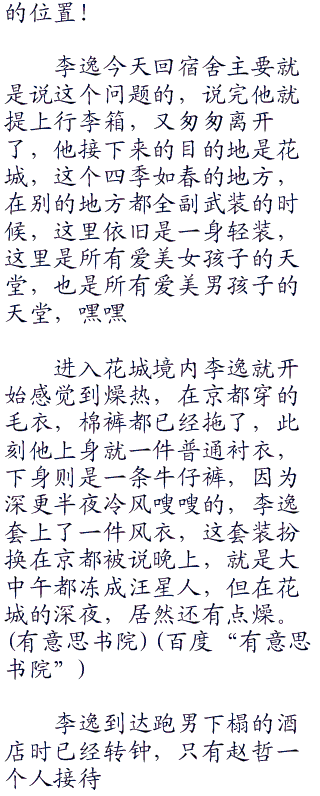 的位置！
李逸今天回宿舍主要就
是说这个问题的，说完他就
提上行李箱，又匆匆离开
了，他接下来的目的地是花
城，这个四季如春的地方，
在别的地方都全副武装的时
候，这里依旧是一身轻装，
这里是所有爱美女孩子的天
堂，也是所有爱美男孩子的
天堂，嘿嘿
进入花城境内李逸就开
始感觉到燥热，在京都穿的
毛衣，棉裤都已经拖了，此
刻他上身就一件普通衬衣，
下身则是一条牛仔裤，因为
深更半夜冷风嗖嗖的，李逸
套上了一件风衣，这套装扮
换在京都被说晚上，就是大
中午都冻成汪星人，但在花
城的深夜，居然还有点燥。
(有意思书院)(百度“有意思
书院”)
李逸到达跑男下榻的酒
店时已经转钟，只有赵哲一
个人接待